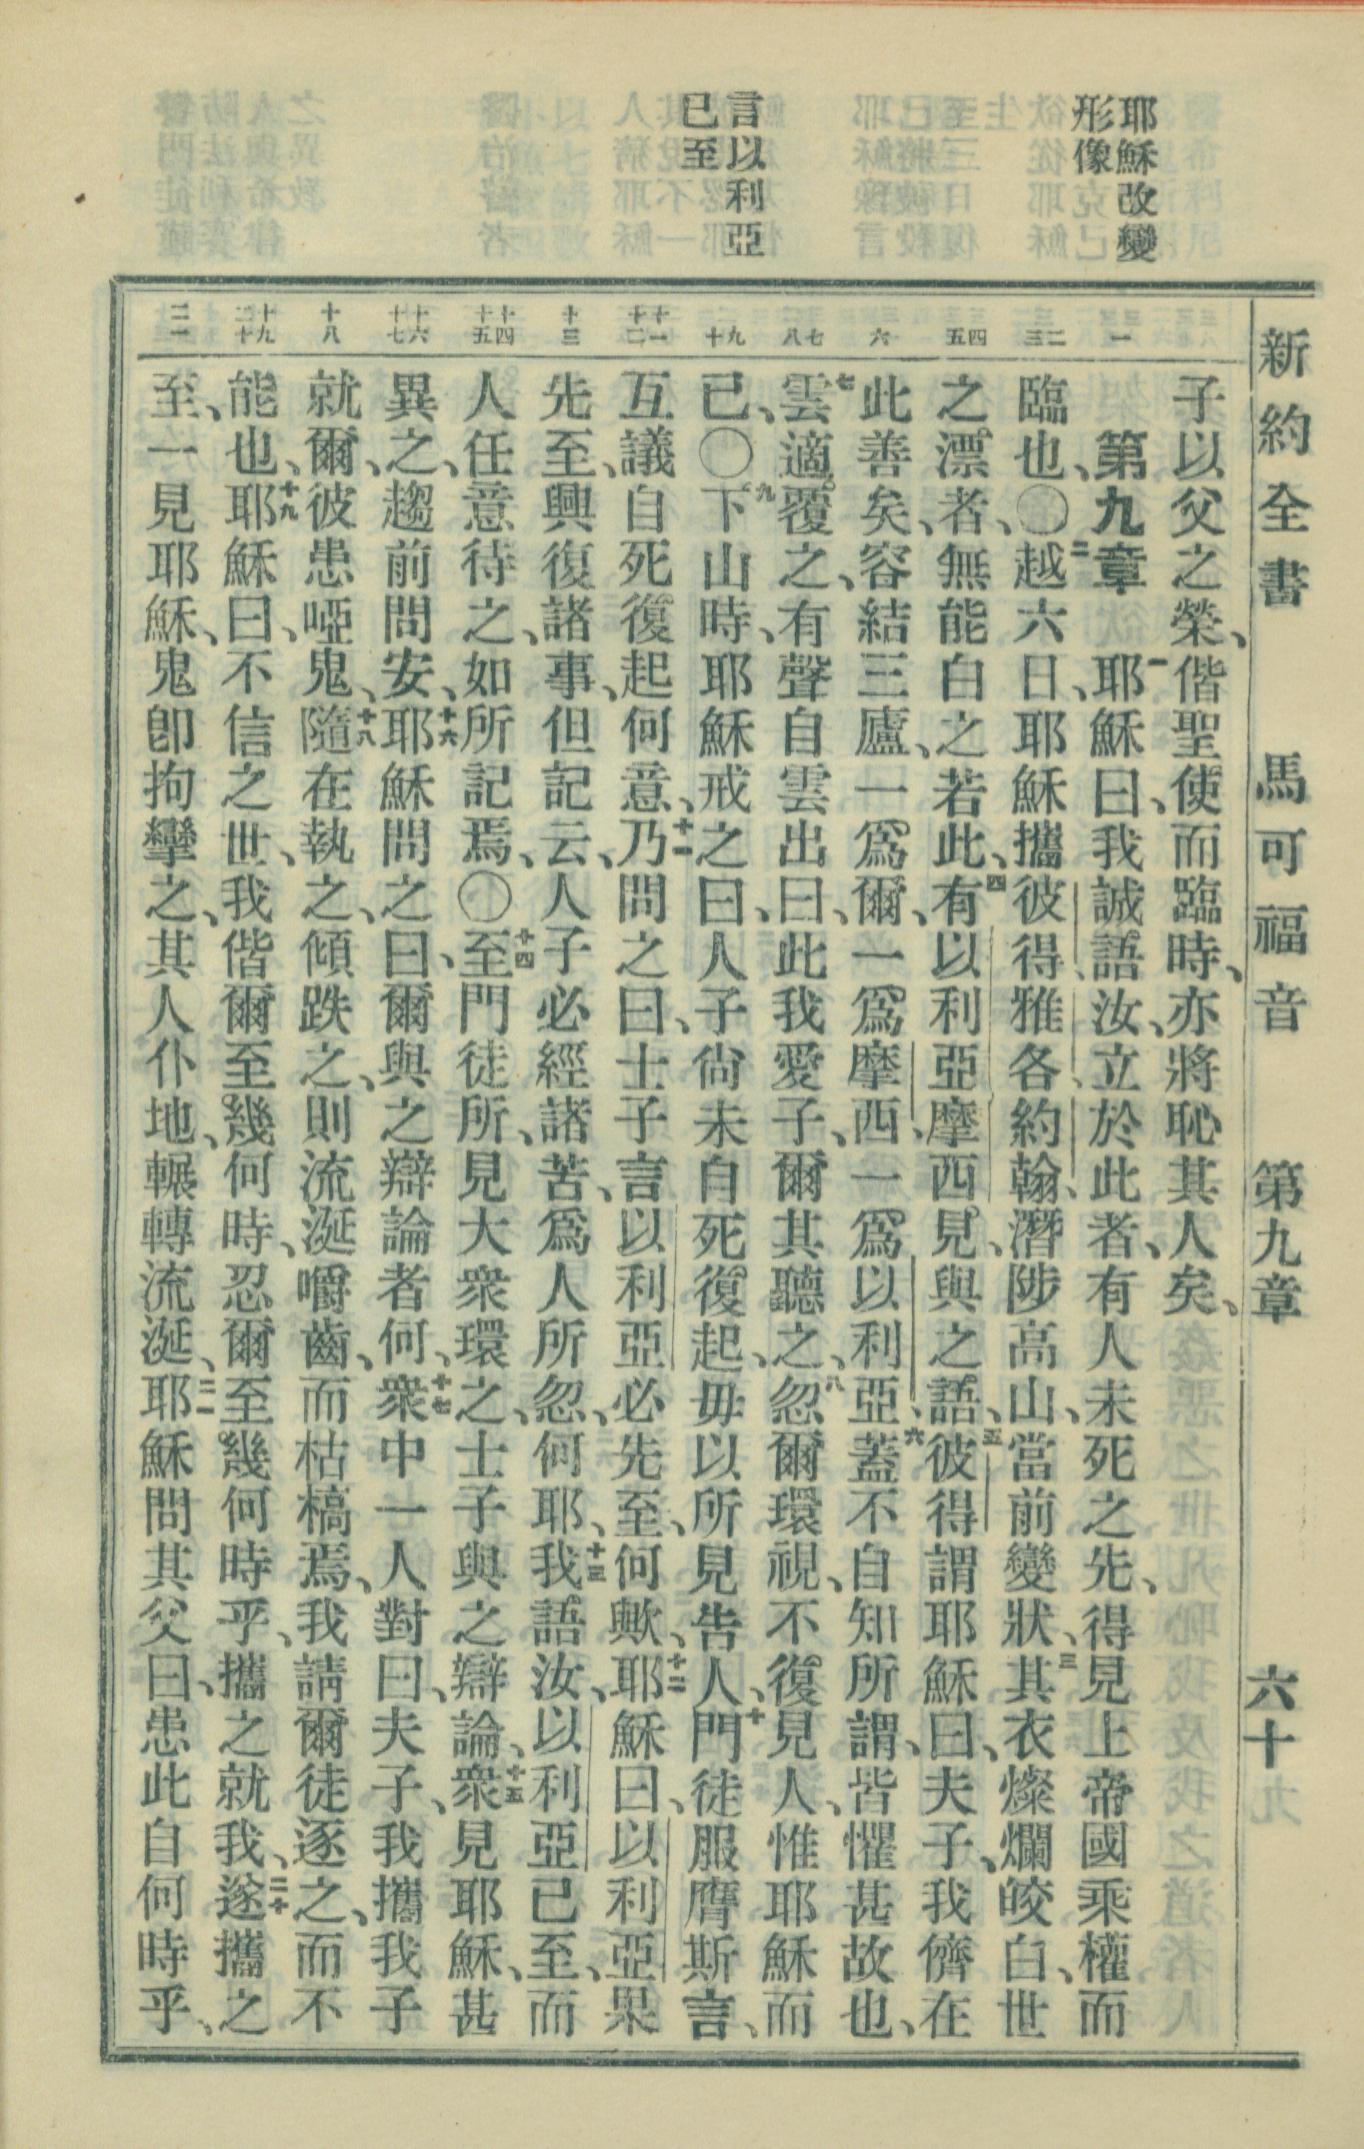 新約全書 馬可福音 第九章 六十
耶穌改變
形像
言以利亞
已至
一
二
三
四
五
六
七
八
九
十
十一
十二
十三
十四
十五
十六
十七
十八
十九
二十
二一
子以父之榮、偕聖使而臨時、亦將恥其人矣、
第九章 一耶穌曰、我誠語汝、立於此者、有人未死之先、得見上帝國乘權而
臨也、〇二越六日、耶穌攜彼得、雅各、約翰、潛陟高山、當前變狀、三其衣燦爛皎白、世
之漂者、無能白之若此、四有以利亞摩西見、與之語、五彼得謂耶穌曰、夫子、我儕在
此善矣、容結三廬、一爲爾、一爲摩西、一爲以利亞、六蓋不自知所謂、皆懼甚故也、
七雲適覆之、有聲自雲出曰、此我愛子、爾其聽之、八忽爾環視、不復見人、惟耶穌而
已、〇九下山時、耶穌戒之曰、人子尙未自死復起、毋以所見告人、十門徒服膺斯言、
互議自死復起何意、十一乃問之曰、士子言以利亞必先至、何歟、十二耶穌曰、以利亞果
先至、興復諸事、但記云、人子必經諸苦、爲人所忽、何耶、十三我語汝、以利亞已至、而
人任意待之、如所記焉、〇十四至門徒所、見大衆環之、士子與之辯論、十五衆見耶穌、甚
異之、趨前問安、十六耶穌問之曰、爾與之辯論者何、十七衆中一人對曰、夫子、我攜我子
就爾、彼患啞鬼、十八隨在執之、傾跌之、則流涎嚼齒、而枯槁焉、我請爾徒逐之、而不
能也、十九耶穌曰、不信之世、我偕爾至幾何時、忍爾至幾何時乎、攜之就我、二十遂攜之
至、一見耶穌、鬼卽拘攣之、其人仆地、輾轉流涎、二一耶穌問其父曰、患此自何時乎、